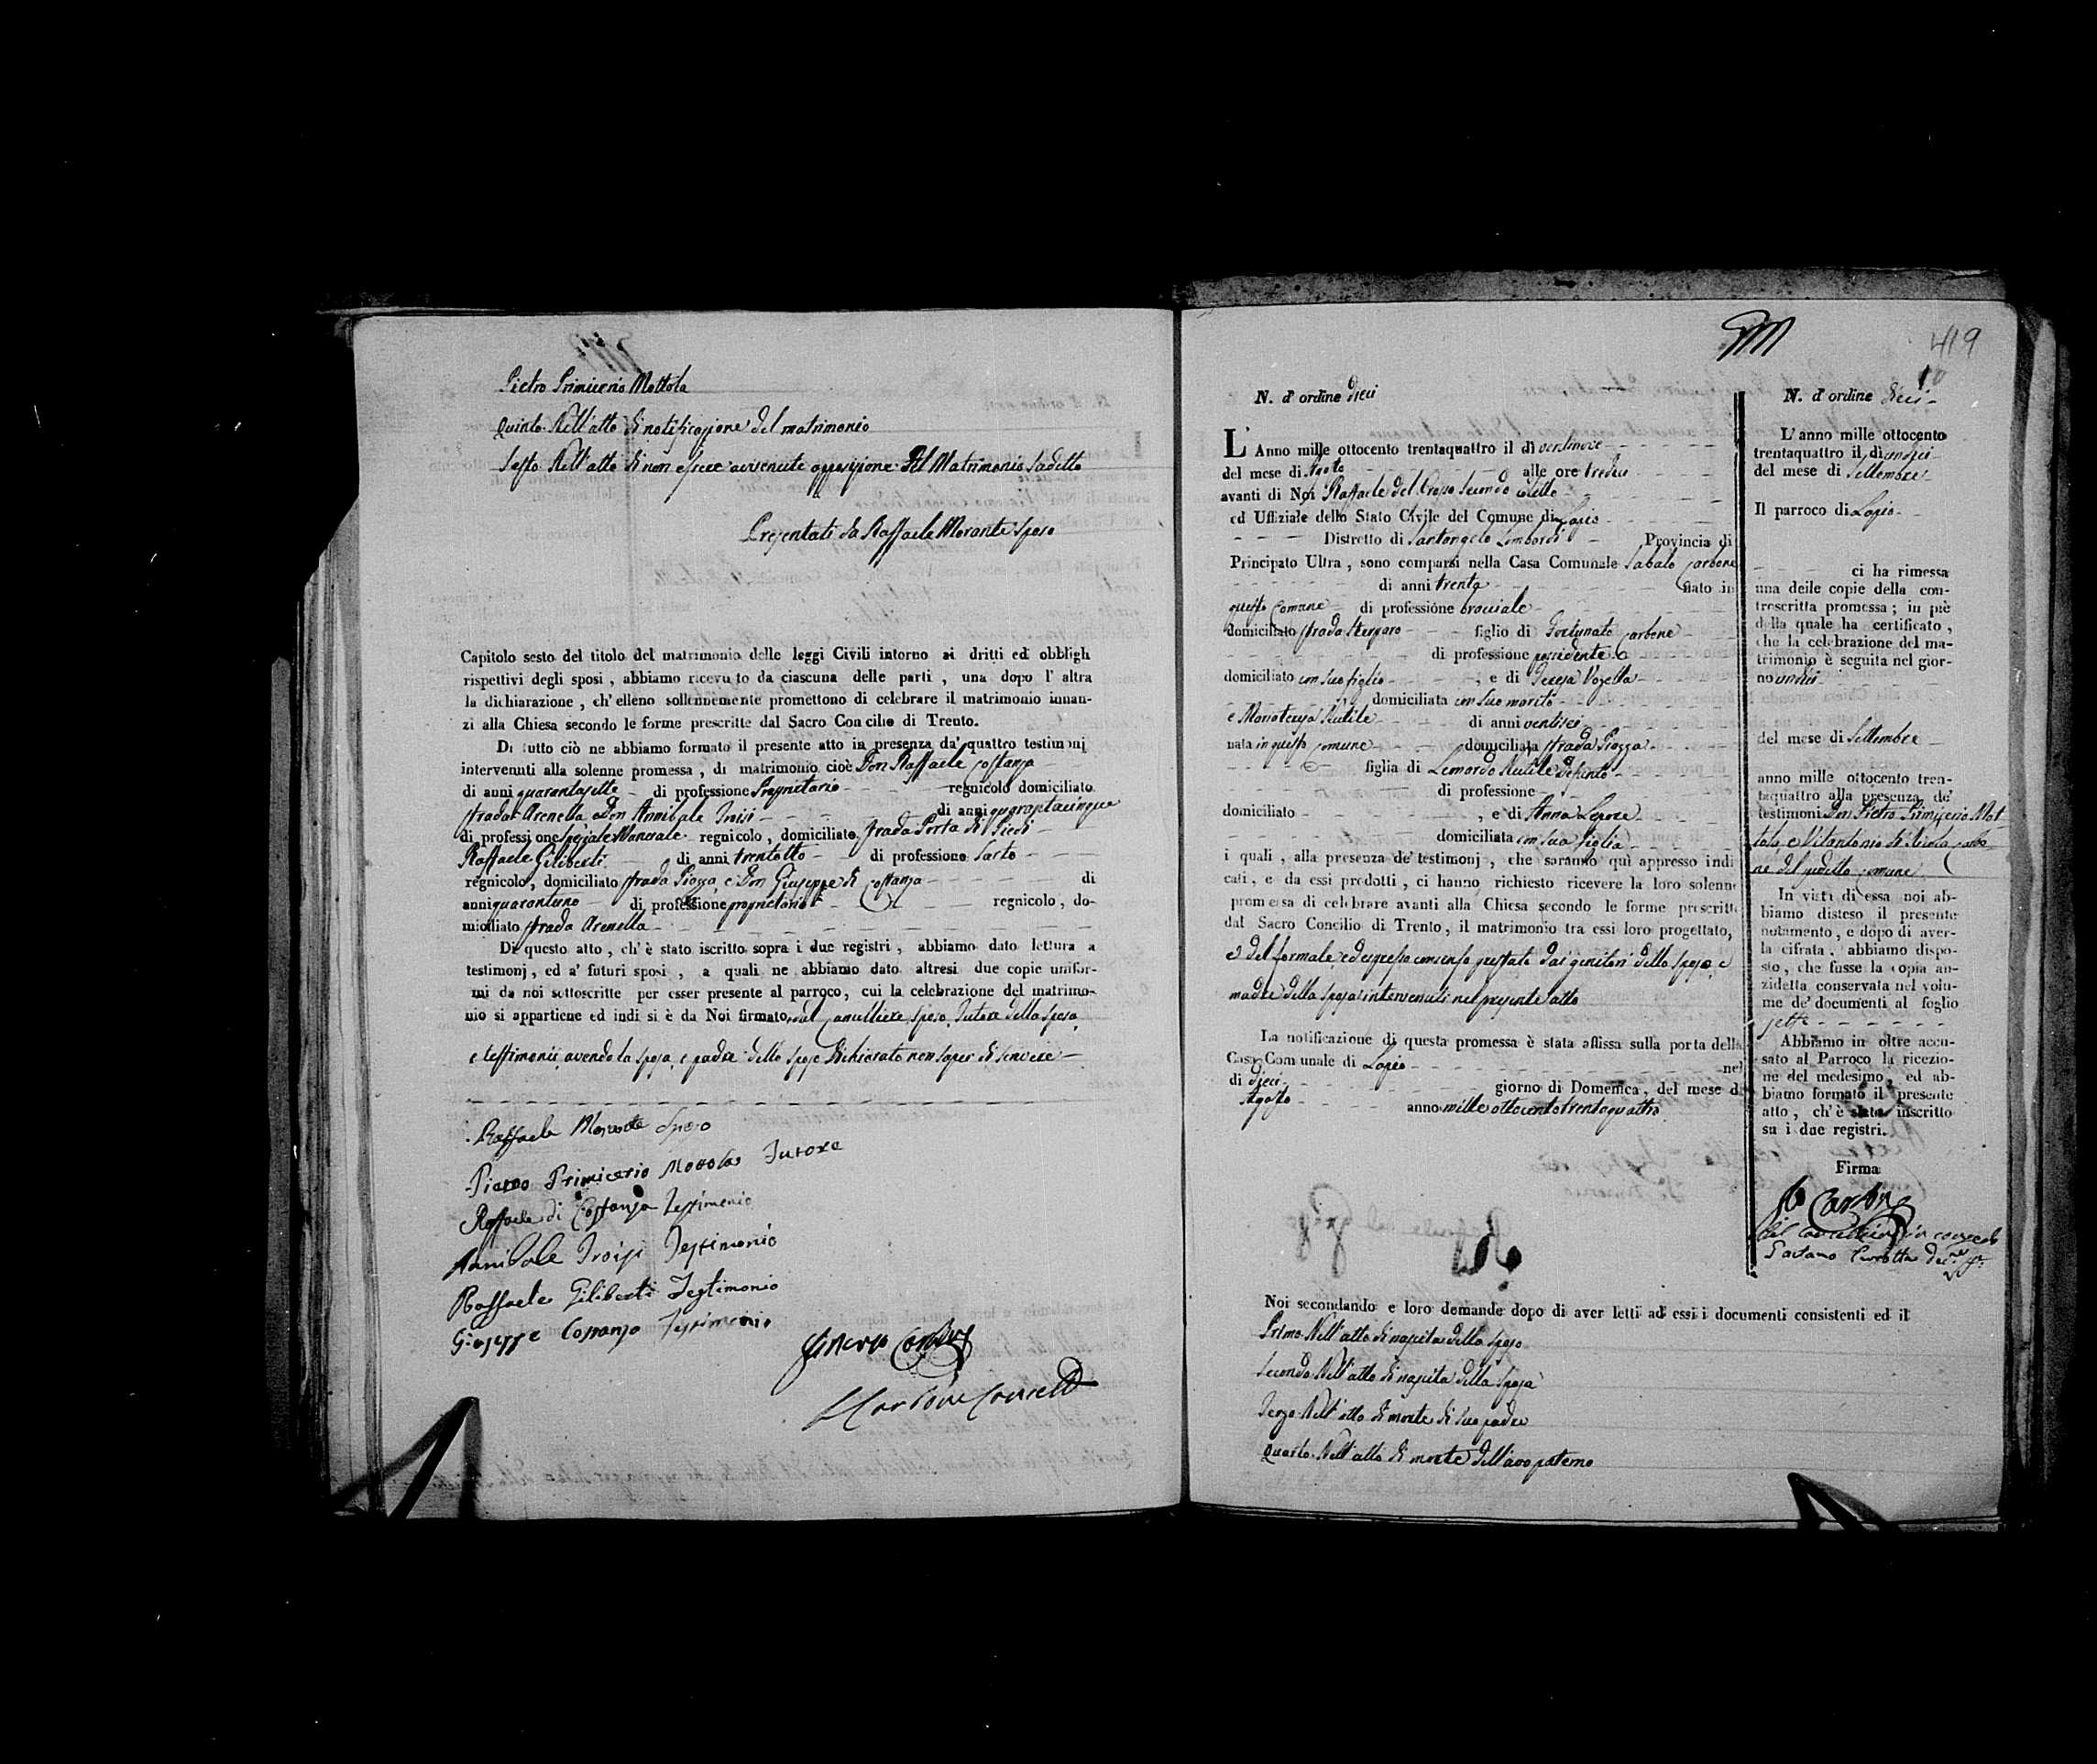 Pietro Primicerio Mottola
Quinto. Nell'atto di notificazione del matrimonio
Sesto. Nell'atto di non essere avvenute opposizione Al Matrimonio sudetto
Presentati da Raffaele Morante sposo
Capitolo sesto del titolo del matrimonio delle leggi Civili intorno ai dritti ed obbligh
rispettivi degli sposi , abbiamo ricevuto da ciascuna delle parti , una dopo l' altra
la dichiarazione , ch' elleno sollennemente promettono di celebrare il matrimonio innan-
zi alla Chiesa secondo le forme prescritte dal Sacro Concilio di Trento.
Di tutto ciò ne abbiamo formato il presente atto in presenza da' quattro testimonj
intervenuti alla solenne promessa , di matrimonio cioè Don Raffaele Costanza
di anni quarantasette di professione Proprietario regnicolo domiciliato
strada Arenella e Don Annibale Troisi di anni quarantacinque
di professione Speziale Manuale regnicolo , domiciliato strada Porta di Piedi
Raffaele Giliberti di anni trentotto di professione Sarto
regnicolo , domiciliato strada Piazza e Don Giuseppe di Costanza di
anni quarantuno di professione proprietario regnicolo , do-
miciliato strada Arenella
Di questo atto , ch' è stato iscritto sopra i due registri , abbiamo dato lettura a
testimonj , ed a' futuri sposi , a quali ne abbiamo dato altresì due copie unifor-
mi da noi sottoscritte per esser presente al parroco, cui la celebrazione del matrimo-
nio si appartiene ed indi si è da Noi firmato, dal Cancelliere, sposo, Tutore della sposa,
e testimonii avendo la sposa, e padre dello sposo dichiarato non saper di scrivere
Raffaele Morante Sposo
Pietro Primicerio Mottola Tutore
Raffaele di Costanza Testimonio
Annibale Troisi Testimonio
Raffaele Giliberti Testimonio
Giuseppe Costanza Testimonio
419
10
N. d' ordine dieci
L' Anno mille ottocento trentaquattro il dì ventinove
del mese di Agosto alle ore tredici
avanti di Noi Raffaele del Grosso Secondo Eletto
ed Uffiziale dello Stato Civile del Comune di Lapio
Distretto di Santangelo Lombardi Provincia di
Principato Ultra , sono comparsi nella Casa Comunale Sabato Carbone
di anni trenta nato in
questo Comune di professione bracciale
domiciliato strada figlio di Fortunato Carbone
di professione possidente
domiciliato con suo figlio , e di Teresa Vozella
domiciliata con suo marito
e Mariateresa di anni ventisei
nata in questo Comune domiciliata strada Piazza
figlia di Leonardo defunto
di professione
domiciliato , e di Anna Lepore
domiciliata con sua figlia
i quali , alla presenza de' testimonj , che saranno qui appresso indi
cati , e da essi prodotti , ci hanno richiesto ricevere la loro solenne
promessa di celebrare avanti alla Chiesa secondo le forme prescritte
dal Sacro Concilio di Trento , il matrimonio tra essi loro progettato,
e del formale, ed espresso consenso prestato dai genitori dello sposo, e
madre della sposa intervenuti nel presente atto
La notificazione di questa promessa è stata affissa sulla porta della
Casa Comunale di Lapio nel
dì dieci giorno di Domenica , del mese d
Agosto anno mille ottocento trentaquattro
Noi secondando e loro demande dopo di aver letti ad essi i documenti consistenti ed il
Primo. Nell'atto di nascita dello sposo
Secondo. Nell'atto di nascita della sposa
Terzo. Nell'atto di morte di suo padre
Quarto. Nell'atto di morte dell'avo paterno
N. d' ordine dieci
L'anno mille ottocento
trentaquattro il dì undici
del mese di Settembre
Il parroco di Lapio
ci ha rimessa
una delle copie della con-
troscritta promessa ; in piè
della quale ha certificato ,
che la celebrazione del ma-
trimonio è seguita nel gior-
no undici
del mese di Settembre
anno mille ottocento tren-
taquattro alla presenza de'
testimoni Don Pietro Primicerio Mot
tola, e Vitantonio di Nicola Carbo
ne del sudetto Comune
In vista di essa noi ab-
biamo disteso il presente
notamento , e dopo di aver-
la cifrata , abbiamo dispo-
sto , che fusse la copia an-
zidetta conservata nel volu-
me de' documenti al foglio
sette
Abbiamo in oltre accu-
sato al Parroco la ricezio-
ne del medesimo , ed ab-
biamo formato il presente
atto , ch' è stato inscritto
su i due registri.
Firma